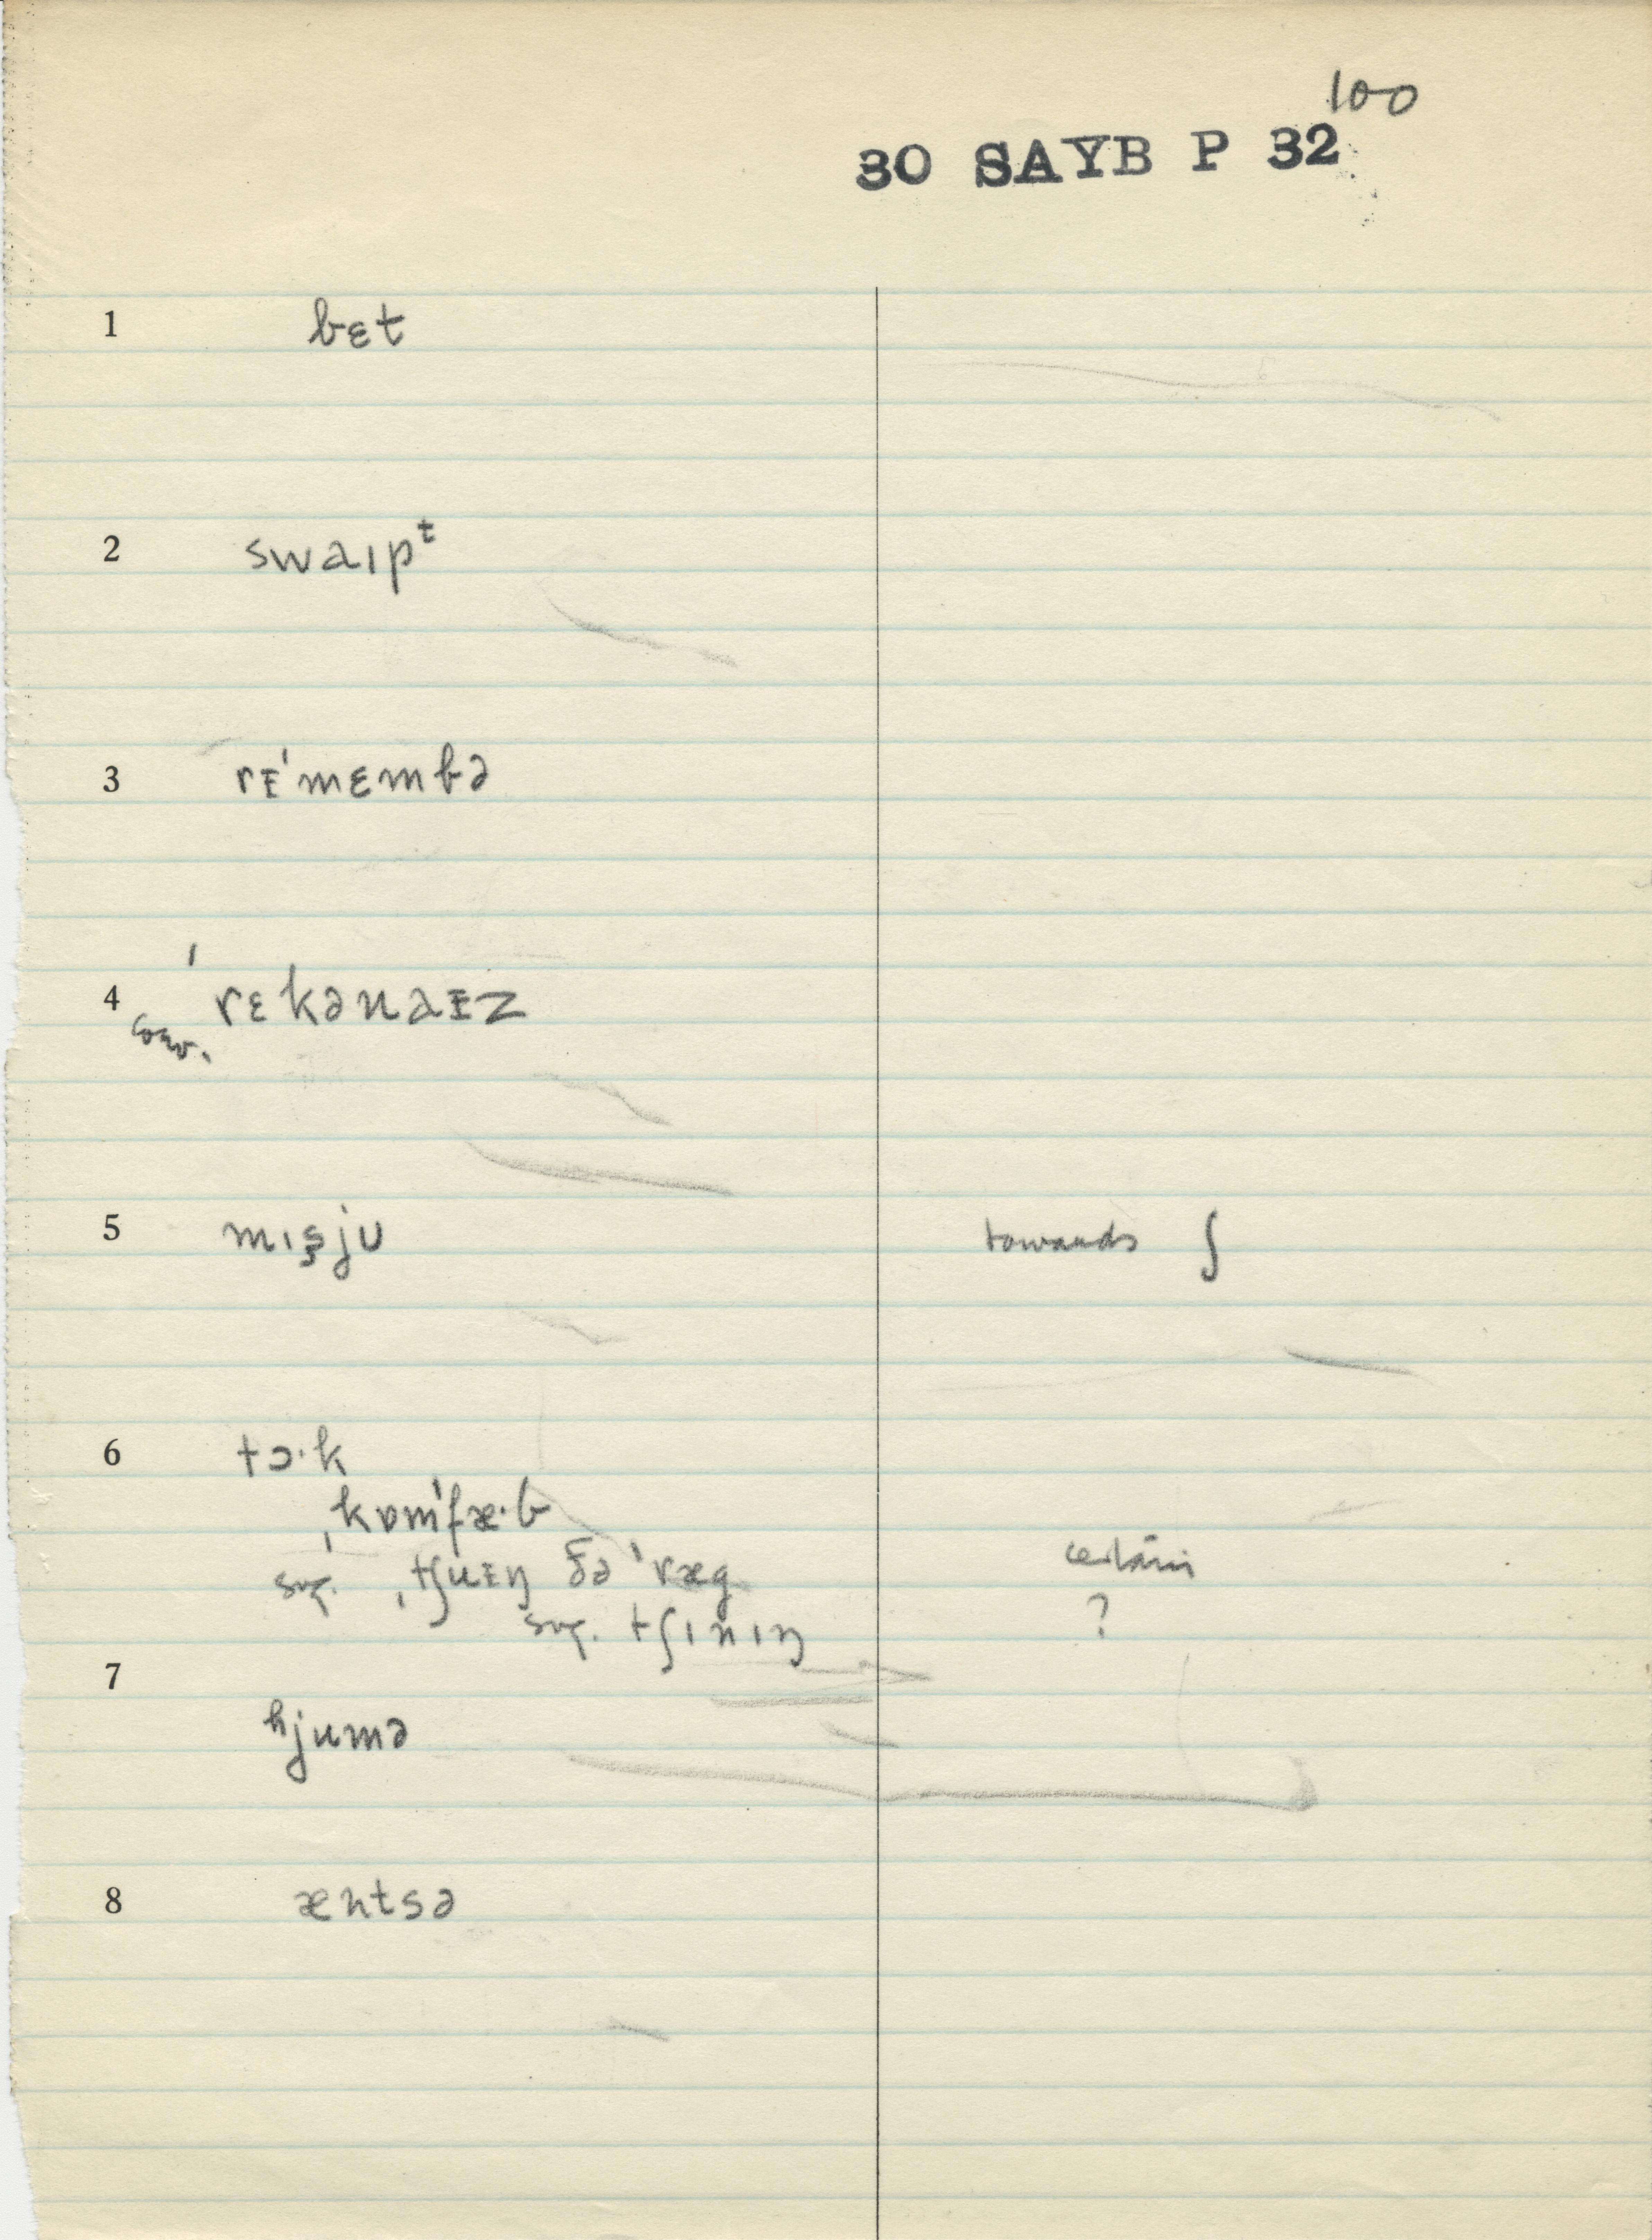 100
30 SAYB P 32
1 bɛt
2 swaɪpᵗ
3 rᵻˈmɛmbə
4 ˈrɛkənaᵻz
conv.
5 mɪs̬ju towards ʃ
6 tɔ·k
ˌkɒmˈfæ·b
sug. ˌtʃuᵻŋ ðə ˈræg certain
sug. tʃɪnɪŋ ?
7
ʰjumə
8 æntsə